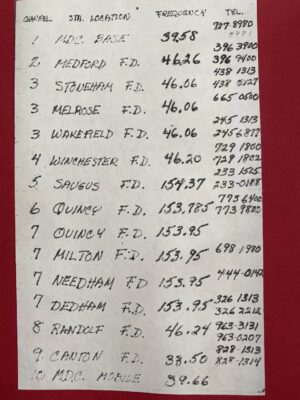 CHANNEL STA. LOCATION FREQUENCY TEL.
727-8980
1 MDC. BASE 39.58
396 3900
2 MEDFORD F.D. 46.26 396 9400
438 1313
3 STONEHAM F.D. 46.06 438 0127
3 MELROSE F.D. 46.06 665 0500
245 1313
3 WAKEFIELD F.D. 46.06 245 6877
729 1800
4 WINCHESTER F.D. 46.20 729 1802
233 1525
5 SAUGUS F.D. 154.37 233-0188
773 6400
6 QUINCY F.D. 153.785 773 9880
7 QUINCY F.D. 153.95
7 MILTON F.D. 153.95 698 1980
7 NEEDHAM FD 153.95 444-0142
7 DEDHAM F.D. 153.95 326 1313
326 2212
8 RANDOLF F.D. 46.24 963-3131
963-0207
9 CANTON F.D. 33.50 828-1313
828-1314
10 MDC. MOBILE 39.66